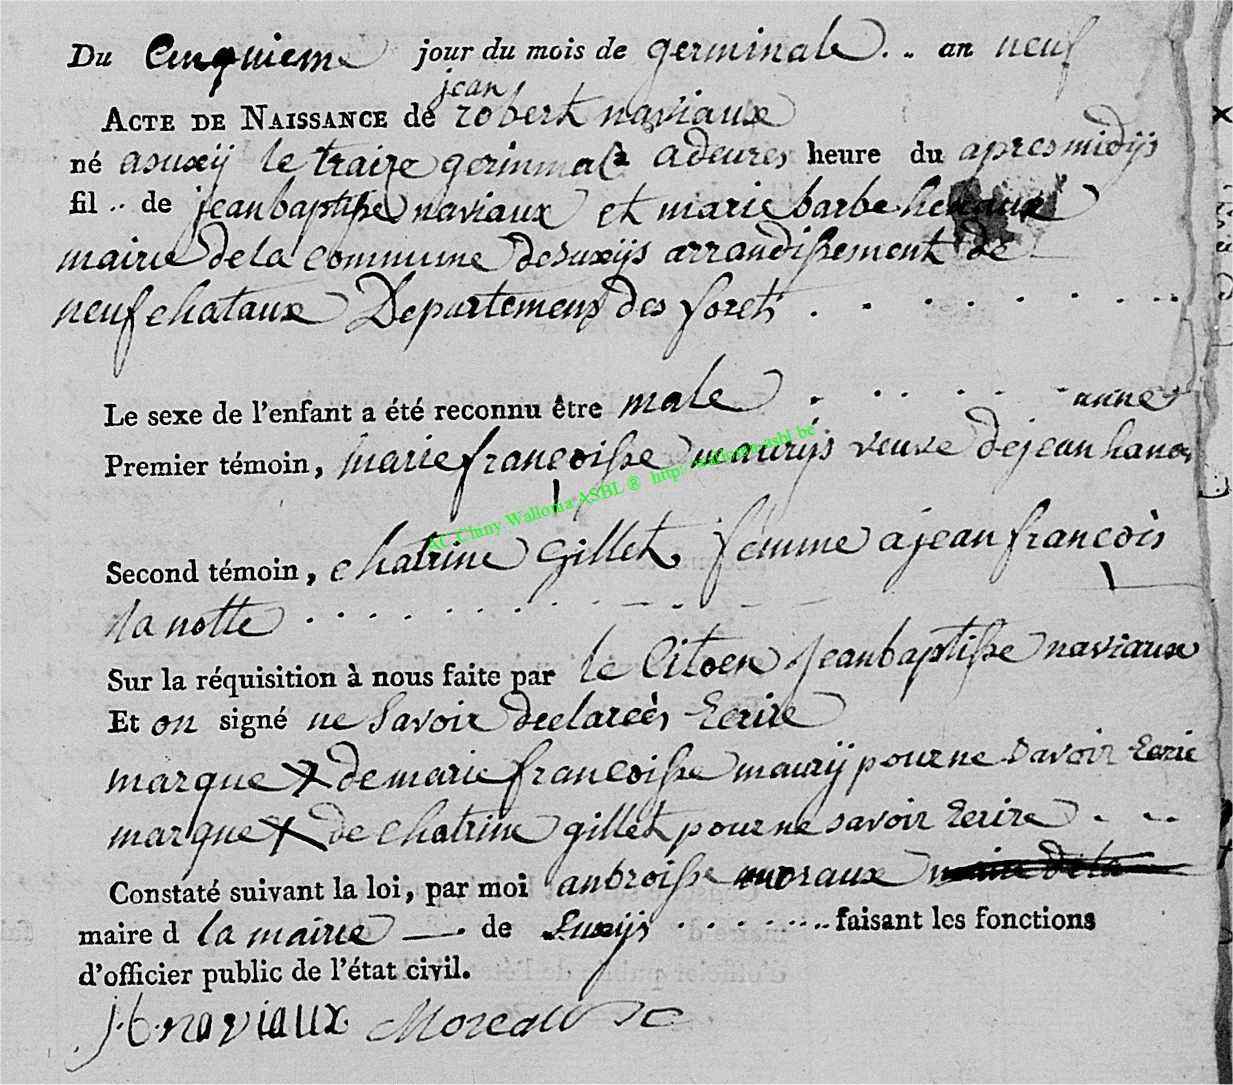 Du Cinquieme jour du mois de germinale .. an neuf
jean
ACTE DE NAISSANCE de robert naviaux
né asuxÿ le traize germinal a deures heure du apres midÿs
fil .. de jean baptisse naviaux et marie barbe
mairie de la commune de suxÿs arrandissement de
neufchataux Departemens des foret . . . . . . . . .
Le sexe de l'enfant a été reconnu être male . . . . . .
anne
Premier témoin, marie françoisse maurÿs veuve de jean
AC Cluny Wallonia ASBL ®
Second témoin, chatrine Gillet femme a jean françois
la notte . . . . . . . . .
Sur la réquisition à nous faite par le Citoen jean baptisse naviaux
Et on signé ne savoir declarees Ecrire
marque X de marie françoisse maurÿ pour ne savoir Ecrie
marque X de chatrine gillet pour ne savoir Ecrire . . .
Constaté suivant la loi, par moi anbroisse moraux maire de la
maire d la mairie — . de Suxÿs . . . . . . . faisant les fonctions
d'officier public de l'état civil.
J·b·naviaux Moreau